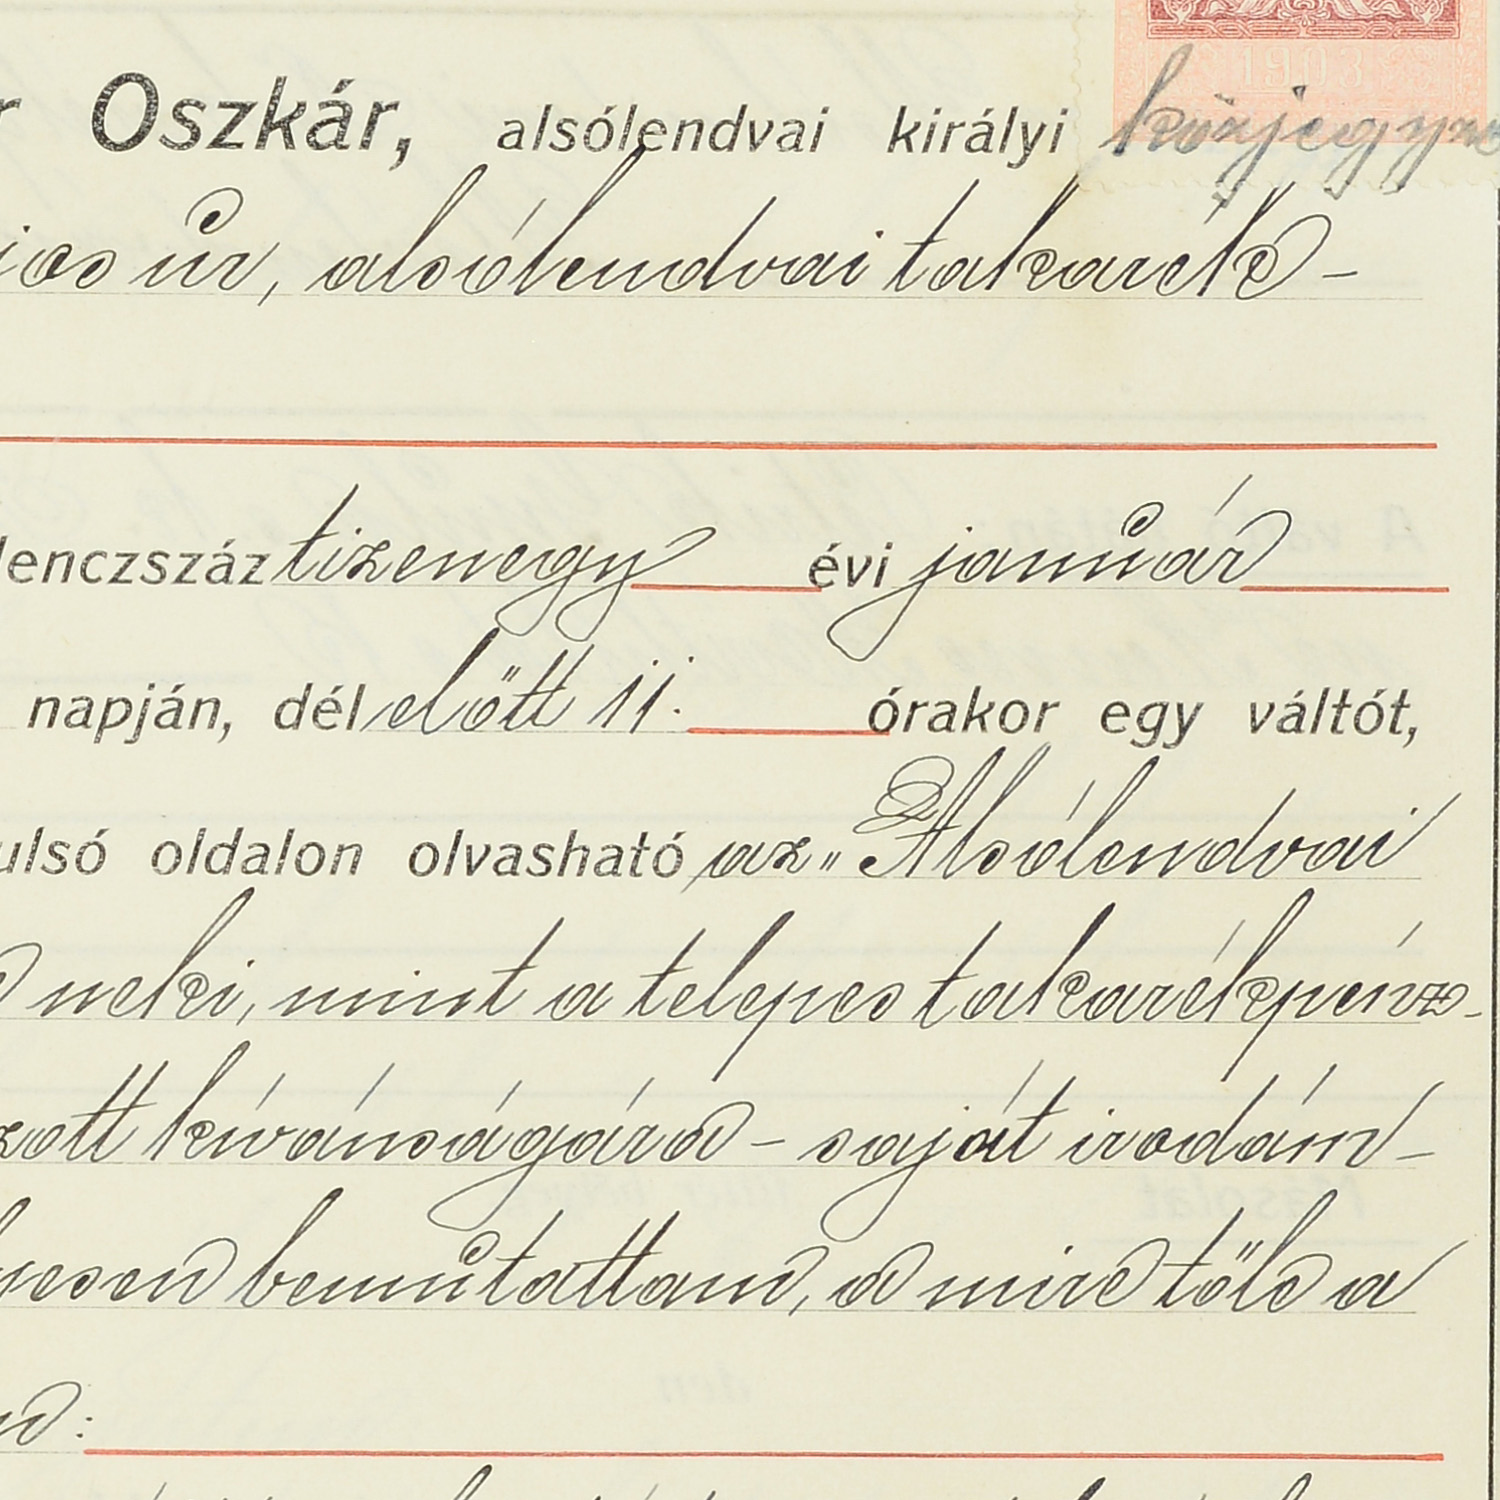 1903
r Oszkár, alsólendvai királyi közjegyző
jos úr, alsólendvai takarék-
lenczszáz tizenegy évi január
napján, dél előtt 11. órakor egy váltót,
ulsó oldalon olvasható az "Alsólendvai
neki, mint a telepes takarékpénz-
zott kívánságára - saját irodám-
yesen bemutattam, a mire tőle a